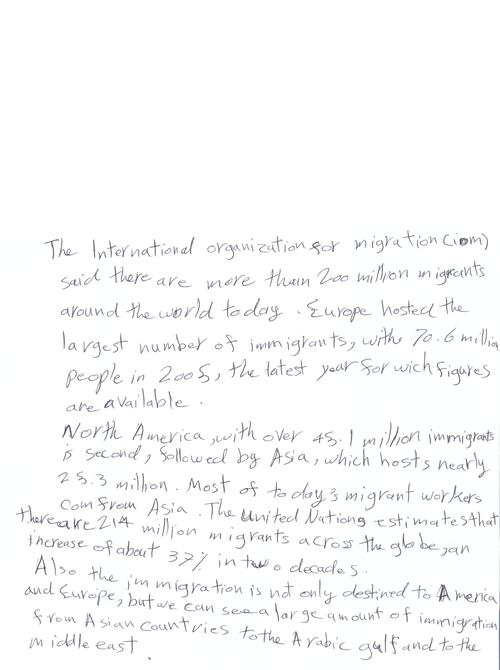 The International organization for migration (iom)
said there are more than 200 million migrants
around the world today . Europe hosted the
largest number of immigrants, withe 70.6 million
people in 2005, the latest year for wich figures
are available .
North America , with over 45.1 million immigrants
is second, followed by Asia, which hosts nearly
25.3 million. Most of today's migrant workers
com from Asia . The United Nations estimates that
there are 214 million migrants across the globe, an
increase of about 37% in two decades.
Also the immigration is not only destined to America
and Europe, but we can see a large amount of immigration
from Asian countries to the Arabic gulf and to the
middle east .